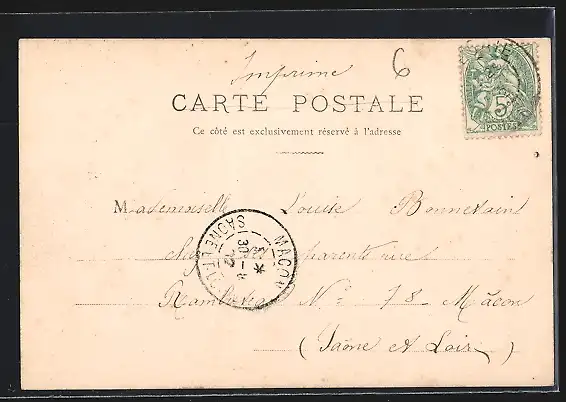 Imprime 6
CARTE POSTALE
5
POSTES
Ce côté est exclusivement réservé à l'adresse
Mademoiselle Louise Bonnetain
chez ses parents rue
Rambuteau N° 78 Mâcon
(Saône et Loire)
MACON
SAONE-ET-L